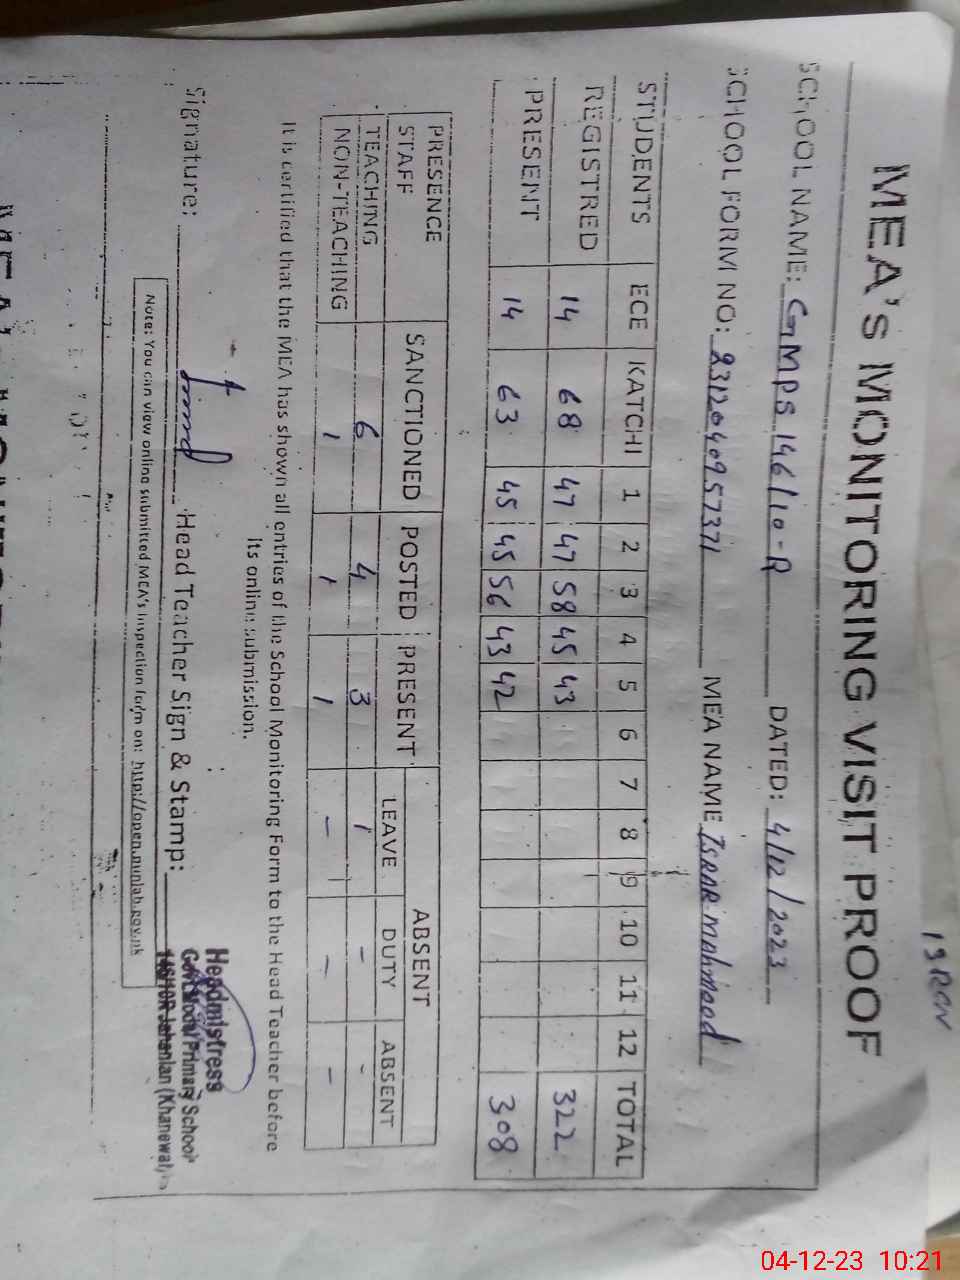 MEA'S MONITORING VISIT PROOF
SCHOOL NAME: GMPS 146/10-R DATED: 4/12/2023
SCHOOL FORM NO: 2312040957371 MEA NAME ISRAR MAHMOOD
STUDENTS ECE KATCHI 1 2 3 4 5 6 7 8 9 10 11 12 TOTAL
REGISTRED 14 68 47 47 58 45 43 322
PRESENT 14 63 45 45 56 43 42 308
PRESENCE STAFF SANCTIONED POSTED PRESENT ABSENT
LEAVE DUTY ABSENT
TEACHING 6 4 3 1 - -
NON-TEACHING 1 1 1 - - -
It is certified that the MEA has shown all entries of the School Monitoring Form to the Head Teacher before
its online submission.
Signature: Head Teacher Sign & Stamp:
Headmistress
Govt. Model Primary School
146/10R Jahanian (Khanewal)
Note: You can view online submitted MEA's Inspection form on: http://open.punjab.gov.pk
04-12-23 10:21